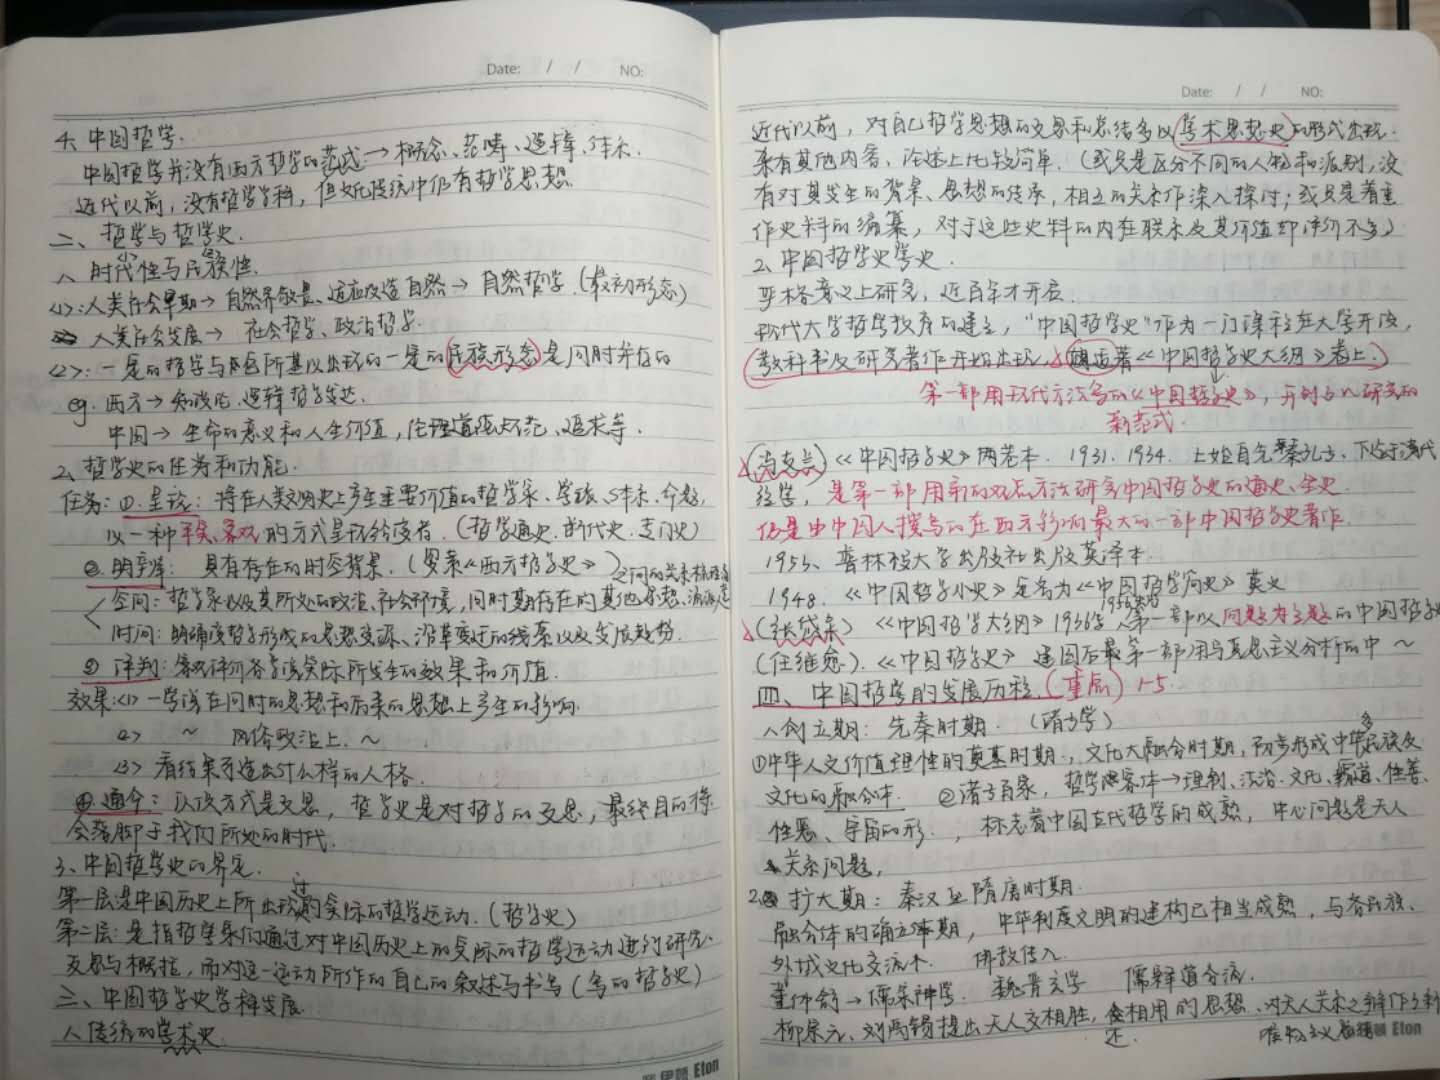 Date: / / NO:
4、中国哲学.
中国哲学并没有西方哲学的范式→概念、范畴、逻辑、体系.
近代以前，没有哲学学科，但文化传统中仍有哲学思想.
二、哲学与哲学史.
1、时代性与民族性.
<1>:人类社会早期→自然界敬畏、适应改造自然→自然哲学.(最初形态)
人类社会发展→ 社会哲学、政治哲学.
<2>:一定的哲学与它所基以出现的一定的民族形态是同时并存的
eg. 西方→知识论.逻辑哲学发达.
中国→生命的意义和人生价值,伦理道德规范、追求等.
2、哲学史的任务和功能.
任务:①.呈现:将在人类文明史上产生重要价值的哲学家、学派、体系.命题,
以一种平实、客观的方式呈现给读者.(哲学通史.断代史.专门史)
②.明变: 具有存在的时空背景.(罗素《西方哲学史》)之间的关系
空间:哲学家以及其所处的政治、社会环境,同时期存在的其他思想、流派
时间:明确该哲学形成的思想资源、沿革变迁的线索以及发展趋势.
③评判:客观评价各学说实际所发生的效果和价值.
效果:<1>一学说在同时的思想和后来的思想上产生的影响.
<2> ~ 风俗政治上.~
<3>看结果可造出什么样的人格.
④.通今:认识方式是反思,哲学史是对哲学的反思,最终目的将
会落脚于我们所处的时代.
3、中国哲学史的界定.
第一层:是中国历史上所出现过的实际的哲学运动.(哲学史)
第二层:是指哲学家们通过对中国历史上的实际的哲学运动进行研究、
反思与概括,而对这一运动所作的自己的叙述与书写(写的哲学史)
三、中国哲学史学科发展.
1、传统的学术史.
伊顿 Eton
Date: / / NO:
近代以前,对自己哲学思想的反思和总结多以学术思想史的形式出现.
杂有其他内容,论述上比较简单.(或只是区分不同的人物和派别,没
有对其发生的背景、思想的传承,相互的关系作深入探讨;或只是着重
作史料的编纂,对于这些史料的内在联系及其价值却评价不多)
2、中国哲学史学史.
严格意义上研究,近百年才开启.
现代大学哲学教育的建立,“中国哲学史”作为一门课程在大学开设,
教科书及研究著作开始出现.胡适著《中国哲学史大纲》卷上.
第一部用现代方法写的《中国哲学史》,开创了研究的
新范式.
(冯友兰)《中国哲学史》两卷本. 1931、1934. 上始自先秦孔子、下迄于清代
经学,是第一部用新的观点方法研究中国哲学史的通史、全史.
仍是由中国人撰写的在西方影响最大的一部中国哲学史著作.
1953、普林斯顿大学出版社出版英译本
1948.《中国哲学小史》定名为《中国哲学简史》英文
(张岱年)《中国哲学大纲》1936年,第一部以问题为主题的中国哲学史
(任继愈).《中国哲学史》建国后最第一部用马克思主义分析的中~
四、中国哲学的发展历程.(重点)1-5.
1、创立期:先秦时期.(诸子学)
①中华人文价值理性的奠基时期.,文化大融合时期,初步形成中华民族及
文化的融合体. ②诸子百家,哲学 →理制、法治.文化、霸道、性善、
性恶、宇宙的形.,标志着中国古代哲学的成熟,中心问题是天人
关系问题,
2. 扩大期:秦汉至隋唐时期.
融合体的确立期,中华制度文明的建构已相当成熟,与各民族、
外域文化交流大. 佛教传入.
董仲舒→儒家神学. 魏晋玄学 儒释道合流.
柳宗元、刘禹锡提出天人交相胜,还相用的思想.对天人关系之辩作了新
唯物主义 
Eton